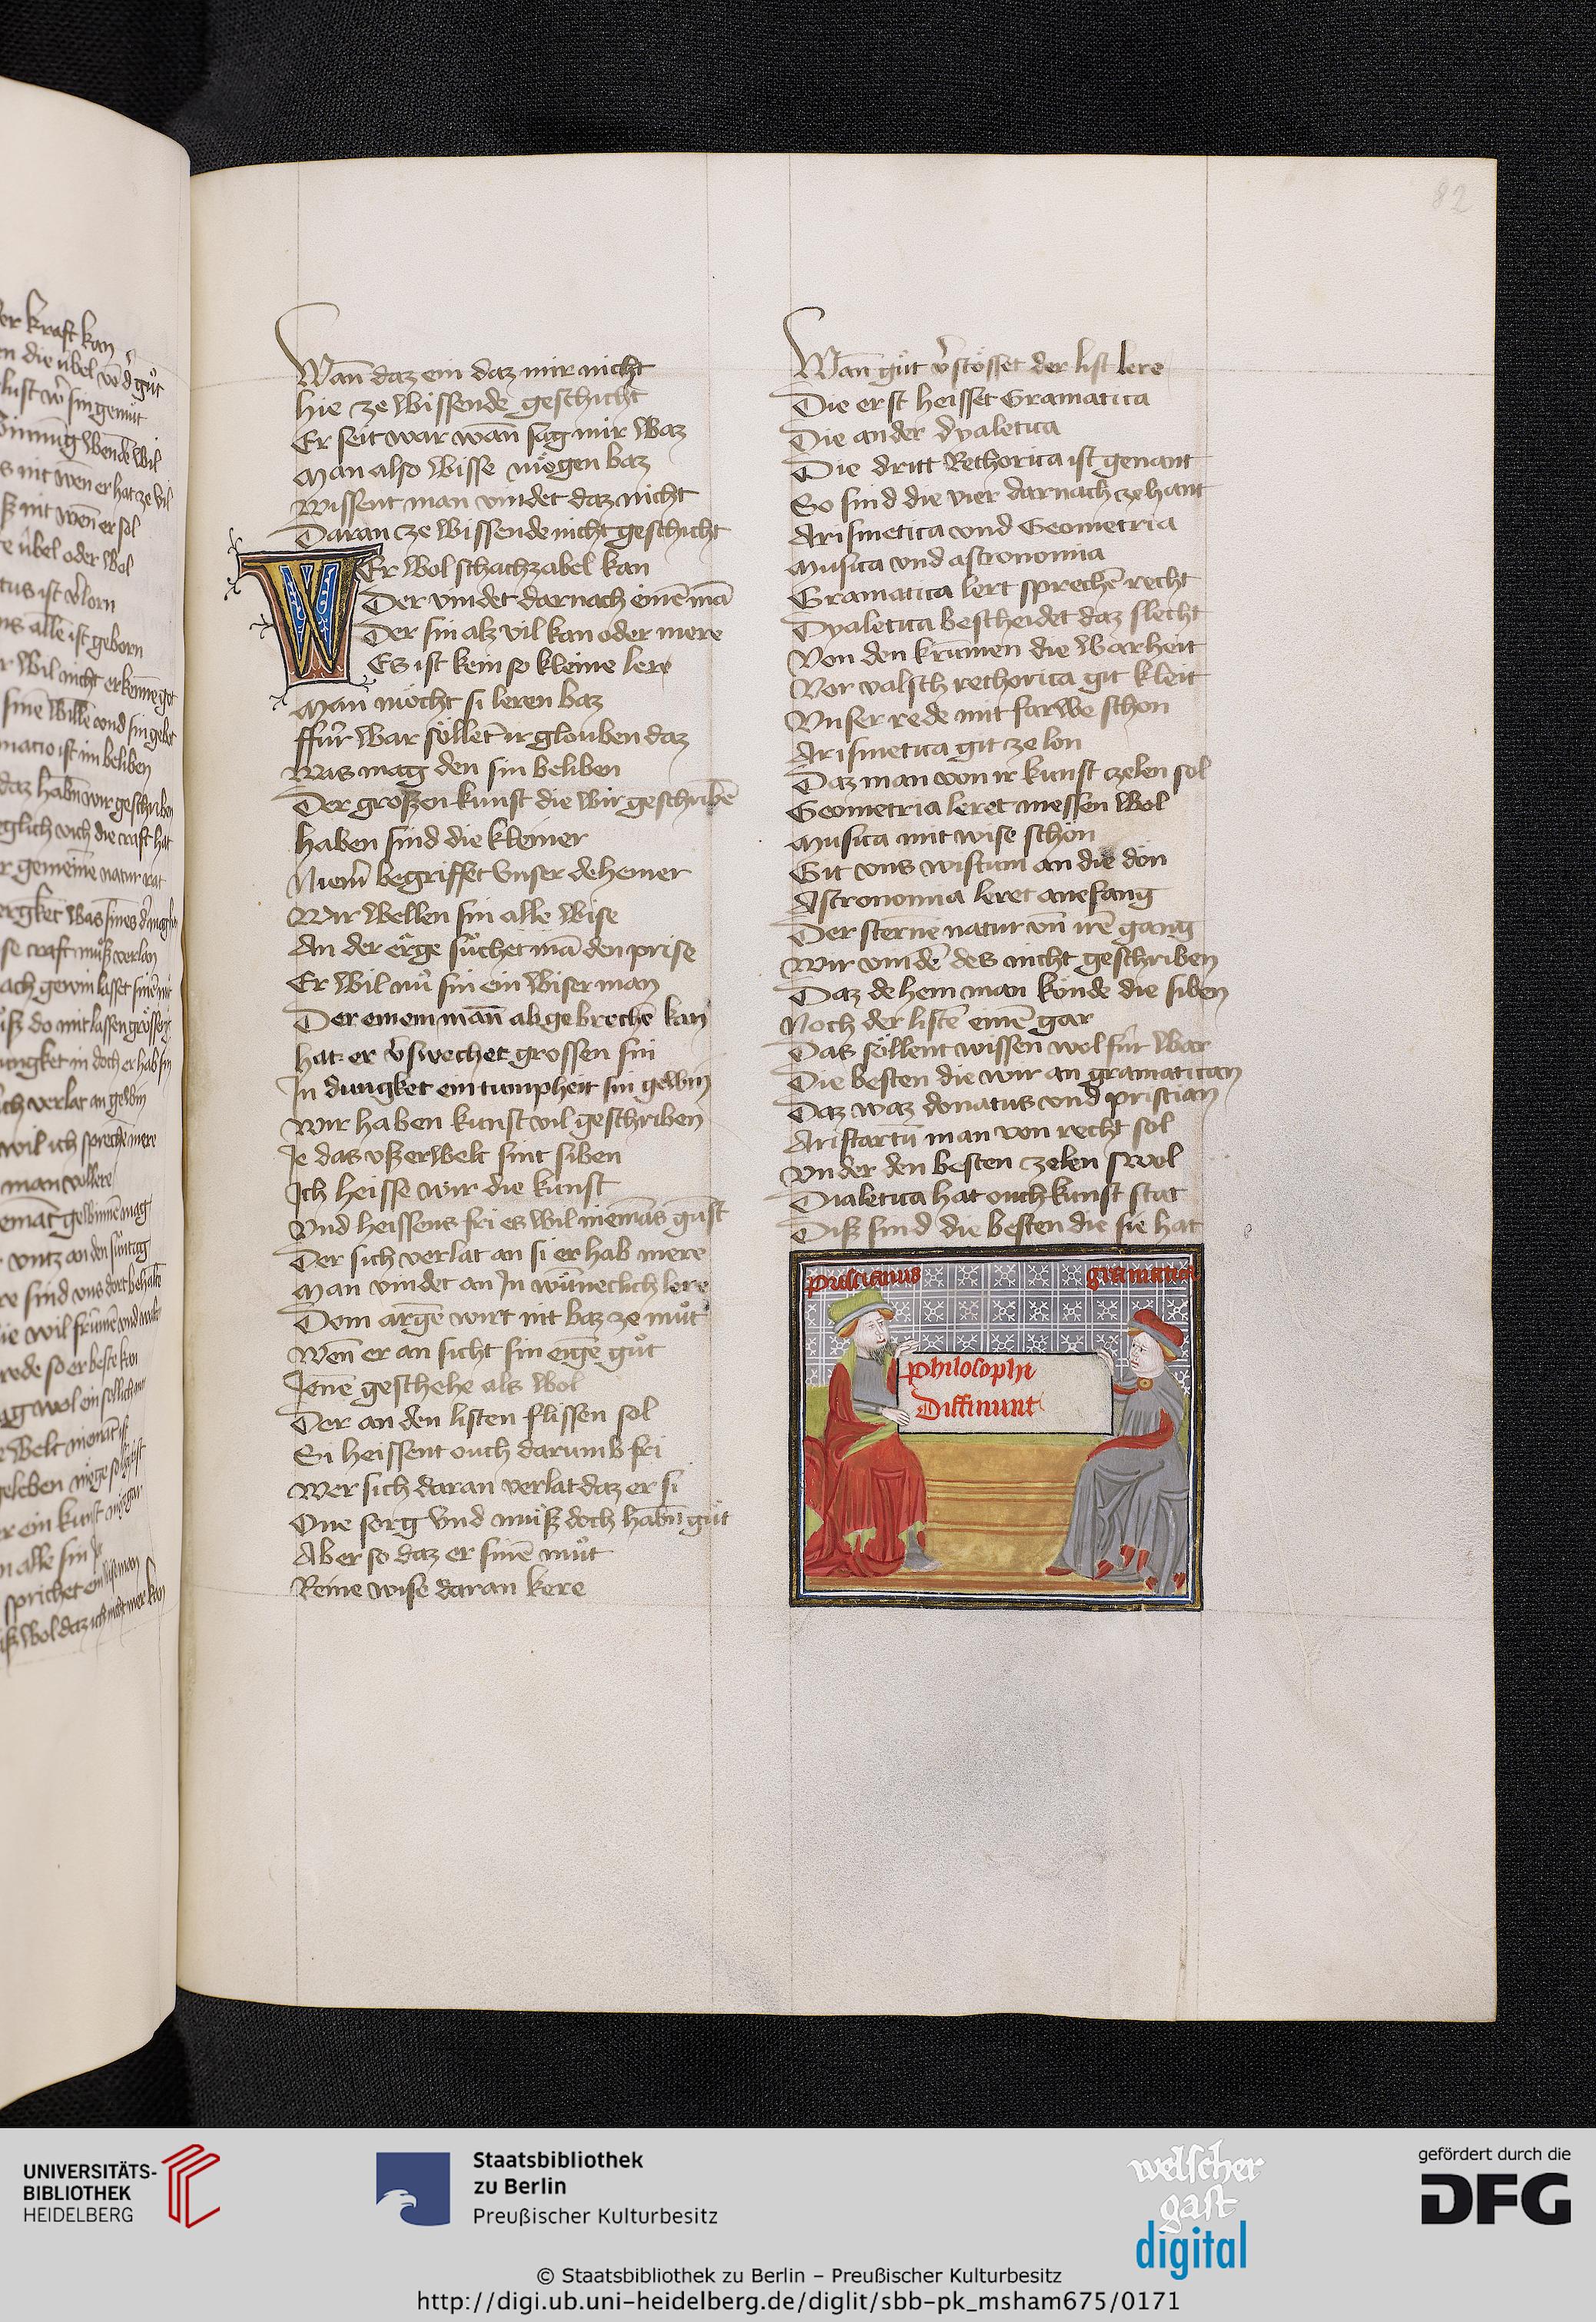 82
er kraft kan
en die ubel vn̄ d gůt
lust vr̄ sin gemůt
s nit wen er hat ze vil
ß nit wen er sol
re úbel oder wol
tus ist v̉lorn
ns alle ist geborn
r wil nicht erkenne got
sinē willē vnd sin gebot
matio ist im beliben
daz habn̄ wir geschriben
eglich vich die craft hat
r gemeine natur rat
se craft můß verlan
ch verlat an gewin
wil ich sprechē mere
man vollere
Wan̄ daz ein daz mir nicht
hie ze wissende geschicht
Er seit war wan̄ sag mir waz
Man also wisse mögen baz
Wissent man vindet daz nicht
Daran ze wissende nicht geschicht
WEr wol schachzabel kan
Der vindet darnach einē mā
Der sin alz vil kan oder mere
Es ist kein so kleine lere
Man möcht si leren baz
ffúr war söllēt ir glouben daz
Was mag den sin beliben
Der großen kunst die wir geschribē
haben sind die kleiner
Niem̄ begriffet vnser deheiner
Wir wellen sin alle wise
An der erge sůchet mā den prise
Er wil nů sin ein wiser man
Der einem mann̄ abgebrechē kan
hat er v̉swechet grossen sin
In dungket ein tumpheit sin gewin
Wir haben kunst vil geschriben
Je das vßerwelt sint siben
Ich heisse wir die kunst
Vnd heissens fri es wil niemās gunst
Der sich verlat an si er hab mere
Man vindet an In wúneclich lere
Dem argē wirt nit baz ze můt
Wen̄ er an sicht sin eigē gůt
Jenē geschehe als wol
Der an den listen flissen sol
Si heissent ouch darumb fri
Wer sich daran verlat daz er si
One sorg vnd můß doch habn̄ gůt
Aber so daz er sinē můt
Reine wise daran kere
Wan̄ gůt v̉stösset der list lere
Die erst heisset Gramatica
Die ander dyaletica
Die dritt Rethorica ist genant
So sind die vier darnach zehant
Arismetica vnd Geometria
Musica vnd astronomia
Gramatica lert sprechē recht
Dyaletica bescheidet daz slecht
Von den krumen die warheit
Vor valsch rethorica git kleit
Vnser rede mit farwe schon
Arismetica git ze lon
Daz man von ir kunst czelen sol
Geometria leret messen wol
Musica mit wise schön
Git vns wistum an die dön
Astronomia leret anefang
Der sternē natur vn̄ irē gang
Wir vindē des nicht geschriben
Daz dehein man könde die siben
Noch der listē einē gar
Das söllent wissen wol fúr war
Die besten die wir an gramatican
Daz waz donatus vnd pristian
Aristartū man von recht sol
Vnder den besten czelen swol
Dialetica hat ouch kunst stat
Diß sind die besten die sie hat
priscianus
gramatica
philosophi
Diffinunt
UNIVERSITÄTS-
BIBLIOTHEK
HEIDELBERG
Staatsbibliothek
zu Berlin
Preußischer Kulturbesitz
welscher
gast
digital
gefördert durch die
DFG
© Staatsbibliothek zu Berlin – Preußischer Kulturbesitz
http://digi.ub.uni-heidelberg.de/diglit/sbb-pk_msham675/0171